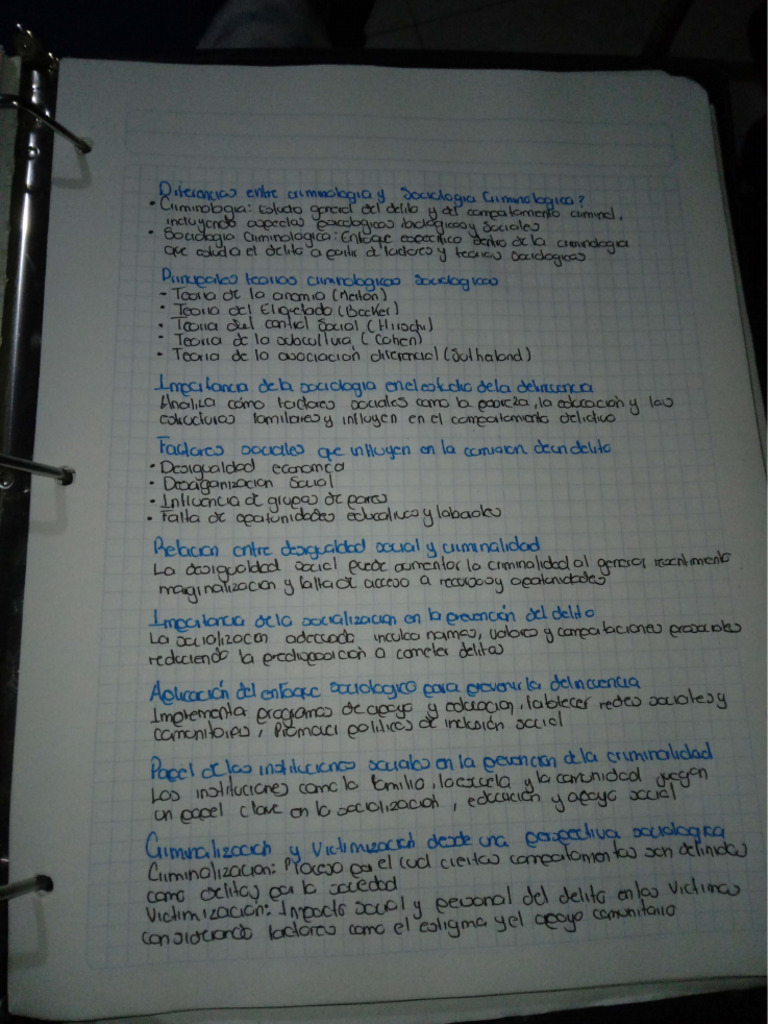 Diferencias entre criminologia y Sociologia Criminologica?
• Criminologia: Estudio general del delito y del comportamiento criminal,
incluyendo aspectos psicologicos biologicos y sociales
• Sociologia Criminologica: Enfoque especifico dentro de la criminologia
que estudia el delito a partir de factores y teorias sociologicas
Principales teorias criminologicas sociologicas
- Teoria de la anomia (Merton)
• Teoria del Etiquetado (Becker)
• Teoria del control Social (Hirschi)
• Teoria de la subcultura (Cohen)
• Teoria de la asociación diferencial (Sutherland)
Importancia de la sociologia en el estudio de la delincuencia
Analiza cómo factores sociales como la pobreza, la educacion y las
estructuras familiares y influyen en el comportamiento delictivo
Factores sociales que influyen en la comision de un delito
• Desigualdad economica
• Desorganizacion Social
• Influencia de grupos de pares
• Falta de oportunidades educativas y laborales
Relacion entre desigualdad social y criminalidad
La desigualdad social puede aumentar la criminalidad al generar resentimiento
marginalizacion y falta de acceso a recursos y oportunidades
Importancia de la socializacion en la prevención del delito
La socializacion adecuada inculca normas, valores y comportaciones prosociales
reduciendo la predisposicion a cometer delitos
Aplicación del enfoque sociologico para prevenir la delincuencia
Implementa programas de apoyo y educacion, establecer redes sociales y
comunitarios, Promover politicas de inclusión social
Papel de las instituciones sociales en la prevencion de la criminalidad
Las instituciones como la familia, la escuela y la comunidad juegan
un papel clave en la socialización, educación y apoyo social
Criminalización y Victimización desde una perspectiva sociologica
Criminalizacion: Proceso por el cual ciertos comportamientos son definidos
como delitos por la sociedad
Victimización: Impacto social y personal del delito en las Victimas
considerando factores como el estigma y el apoyo comunitario